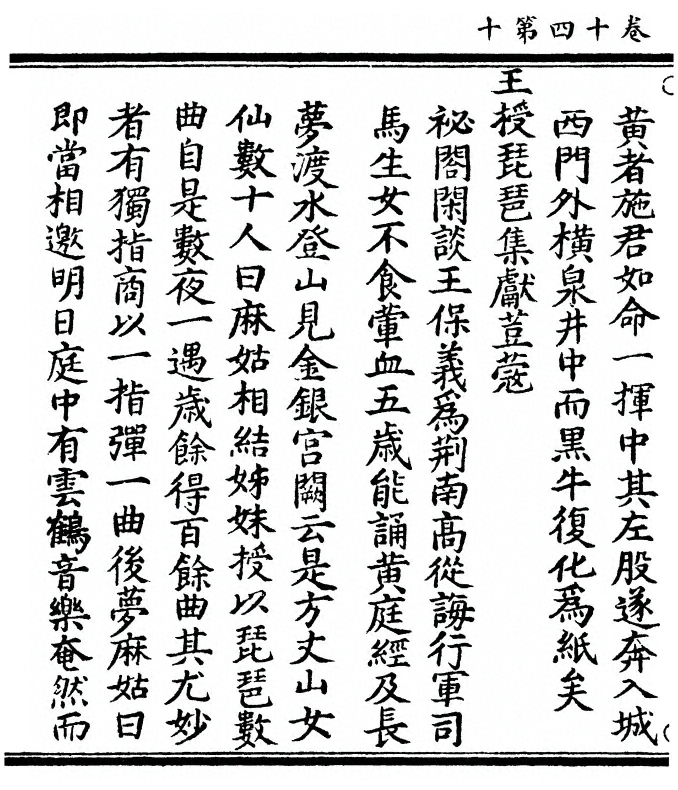 卷十四第十
黃者施君如命一揮中其左股遂奔入城
西門外橫泉井中而黑牛復化爲紙矣
王授琵琶集獻荳蔻
祕閣閑談王保義爲荆南高從誨行軍司
馬生女不食葷血五歲能誦黃庭經及長
夢渡水登山見金銀宮闕云是方丈山女
仙數十人曰麻姑相結姊妹授以琵琶數
曲自是數夜一遇歲餘得百餘曲其尤妙
者有獨指商以一指彈一曲後夢麻姑曰
即當相邀明日庭中有雲鶴音樂奄然而